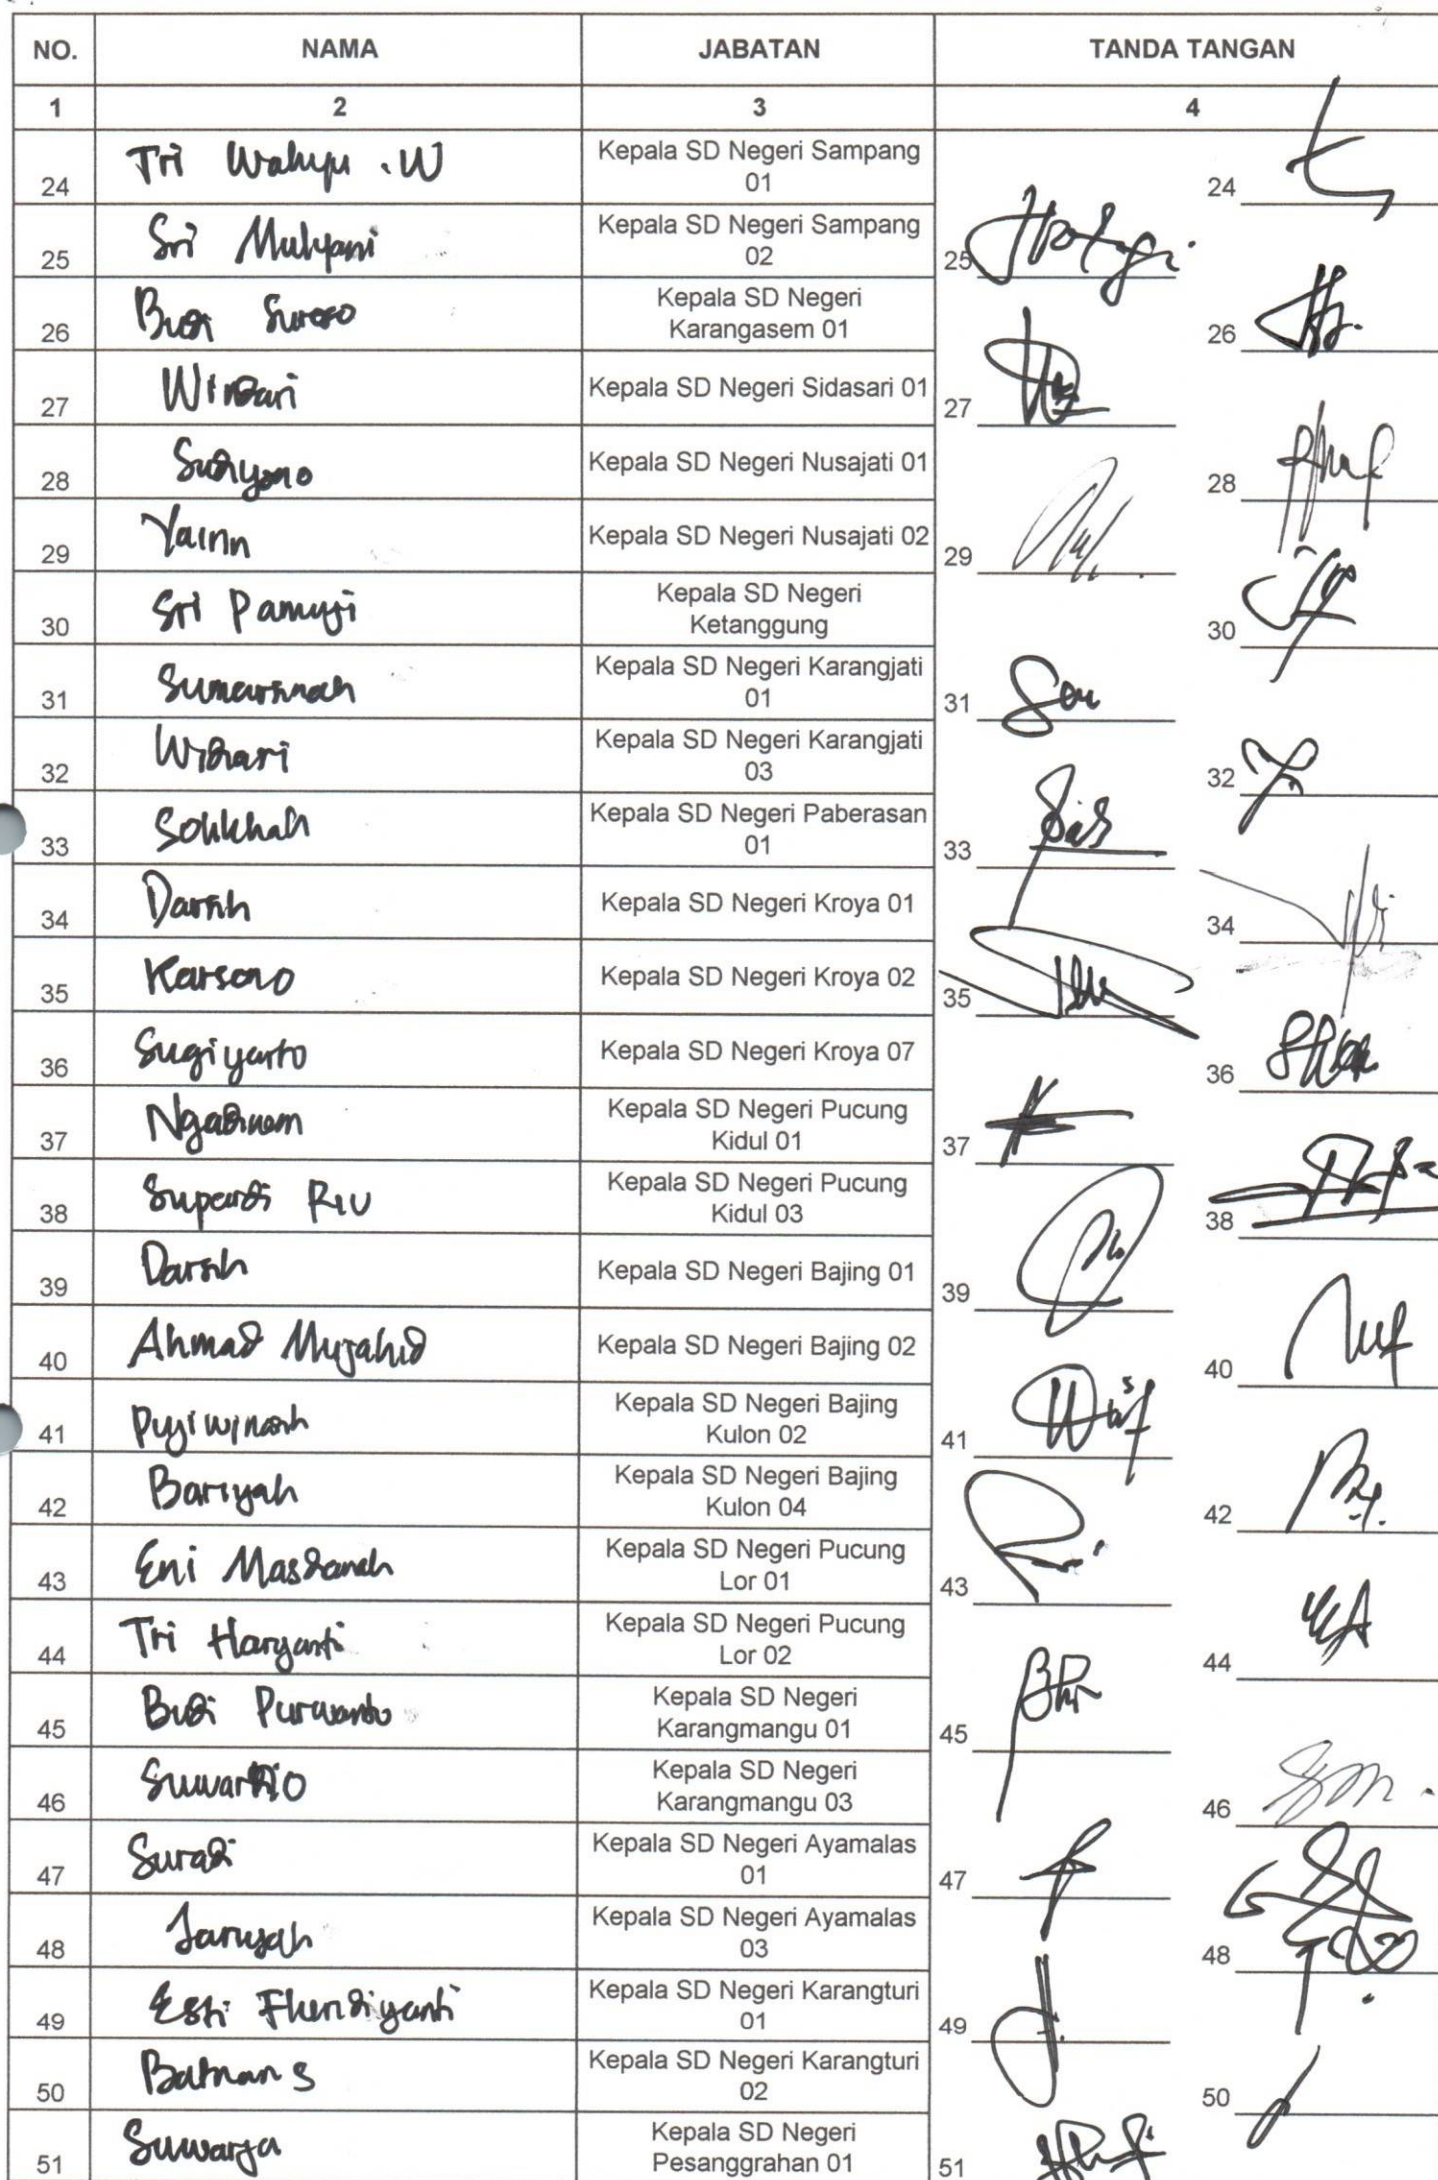 NO. NAMA JABATAN TANDA TANGAN
1 2 3 4
24 Tri Wahyu . W Kepala SD Negeri Sampang 01 24
25 Sri Mulyani Kepala SD Negeri Sampang 02 25
26 Budi Suroso Kepala SD Negeri Karangasem 01 26
27 Kepala SD Negeri Sidasari 01 27
28 Kepala SD Negeri Nusajati 01 28
29 Kepala SD Negeri Nusajati 02 29
30 Sri Pamuji Kepala SD Negeri Ketanggung 30
31 Kepala SD Negeri Karangjati 01 31
32 Widari Kepala SD Negeri Karangjati 03 32
33 Solikhah Kepala SD Negeri Paberasan 01 33
34 Darsih Kepala SD Negeri Kroya 01 34
35 Karsono Kepala SD Negeri Kroya 02 35
36 Sugiyarto Kepala SD Negeri Kroya 07 36
37 Ngadinem Kepala SD Negeri Pucung Kidul 01 37
38 Supardi Kepala SD Negeri Pucung Kidul 03 38
39 Darsih Kepala SD Negeri Bajing 01 39
40 Ahmad Mujahid Kepala SD Negeri Bajing 02 40
41 Puji Winarsih Kepala SD Negeri Bajing Kulon 02 41
42 Bariyah Kepala SD Negeri Bajing Kulon 04 42
43 Eni Masdanah Kepala SD Negeri Pucung Lor 01 43
44 Tri Haryanti Kepala SD Negeri Pucung Lor 02 44
45 Budi Purwanto Kepala SD Negeri Karangmangu 01 45
46 Kepala SD Negeri Karangmangu 03 46
47 Suradi Kepala SD Negeri Ayamalas 01 47
48 Jariyah Kepala SD Negeri Ayamalas 03 48
49 Esti Kepala SD Negeri Karangturi 01 49
50 Kepala SD Negeri Karangturi 02 50
51 Suwarja Kepala SD Negeri Pesanggrahan 01 51